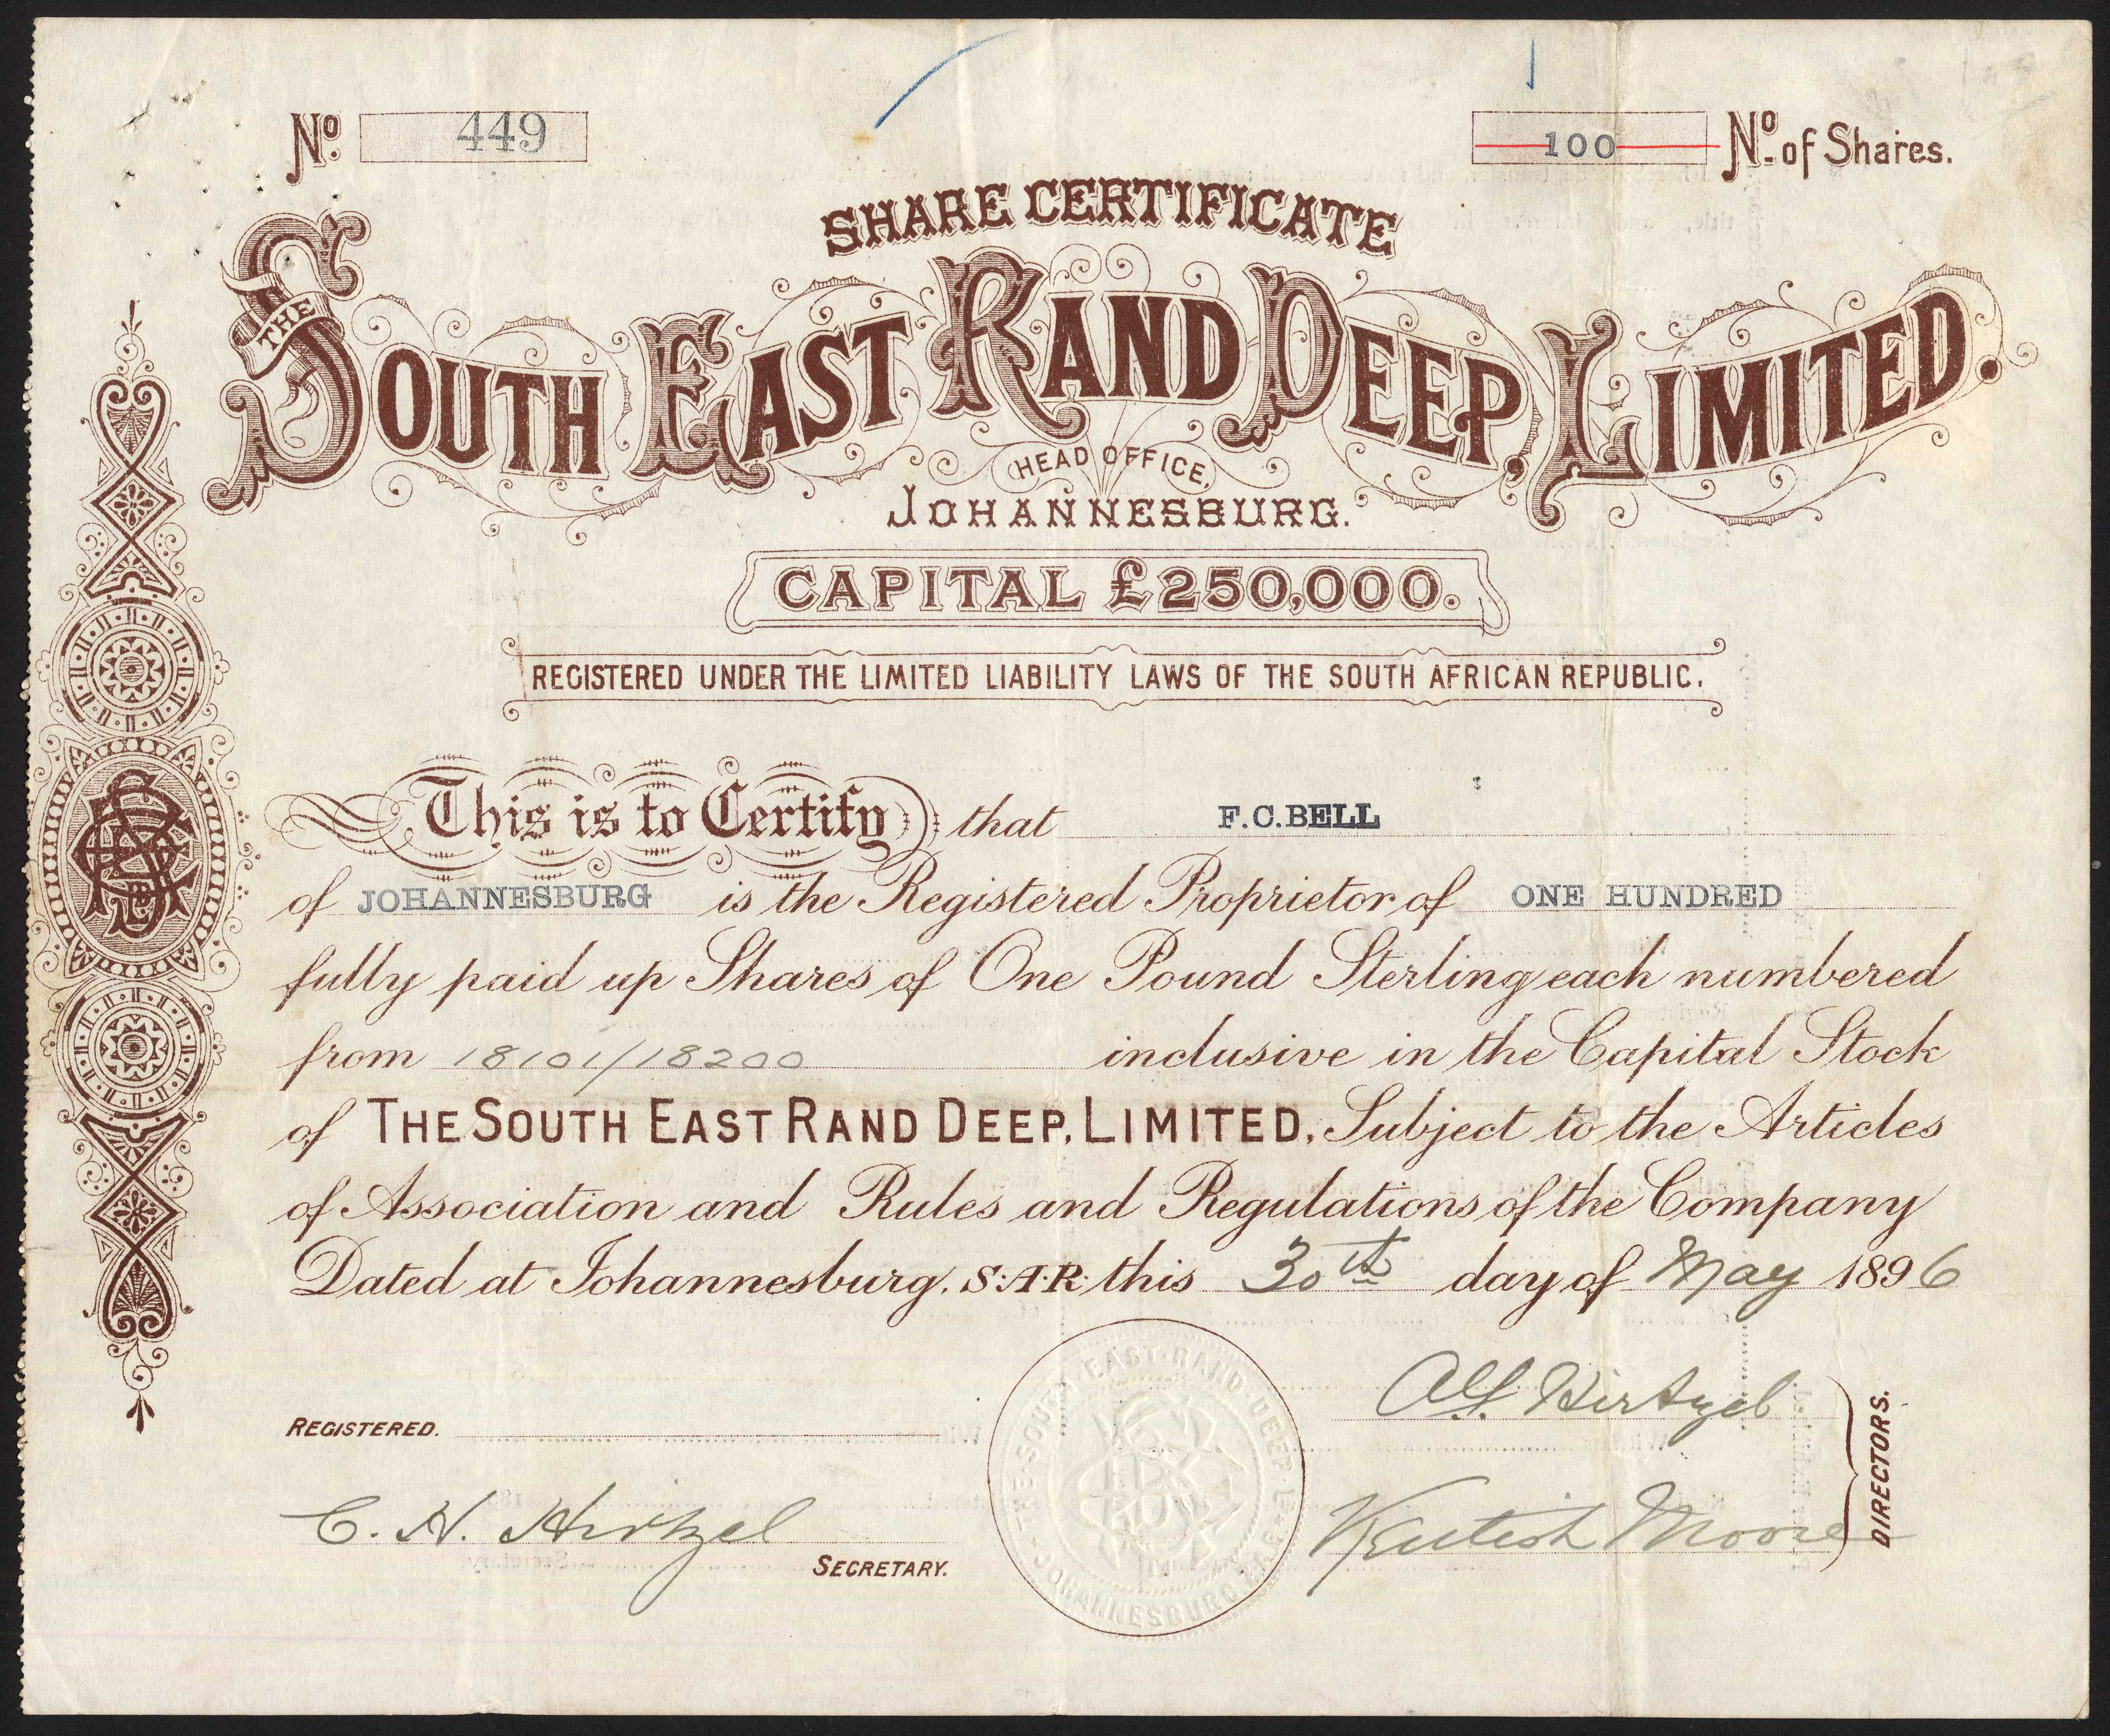 No. 449
100 No. of Shares.
SHARE CERTIFICATE
THE SOUTH EAST RAND DEEP, LIMITED.
HEAD OFFICE,
JOHANNESBURG.
CAPITAL £250,000.
REGISTERED UNDER THE LIMITED LIABILITY LAWS OF THE SOUTH AFRICAN REPUBLIC.
This is to Certify that F.C.BELL
of JOHANNESBURG is the Registered Proprietor of ONE HUNDRED
fully paid up Shares of One Pound Sterling each numbered
from 18101/18200 inclusive in the Capital Stock
of THE SOUTH EAST RAND DEEP, LIMITED, Subject to the Articles
of Association and Rules and Regulations of the Company
Dated at Johannesburg, S.A.R. this 30th day of May 1896
THE·SOUTH·EAST·RAND·DEEP·LD
JOHANNESBURG
Alf. Hirtzel
REGISTERED.
DIRECTORS.
C. H. Hirtzel
Kentish Moore
SECRETARY.